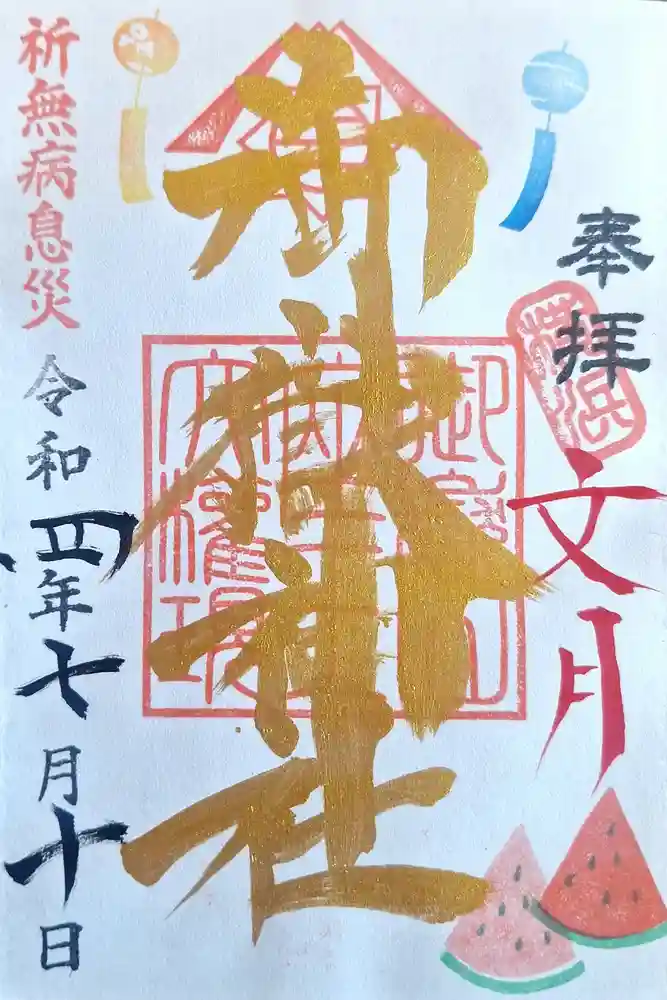 奉拝
文月
御嶽神社
祈無病息災
令和四年七月十日